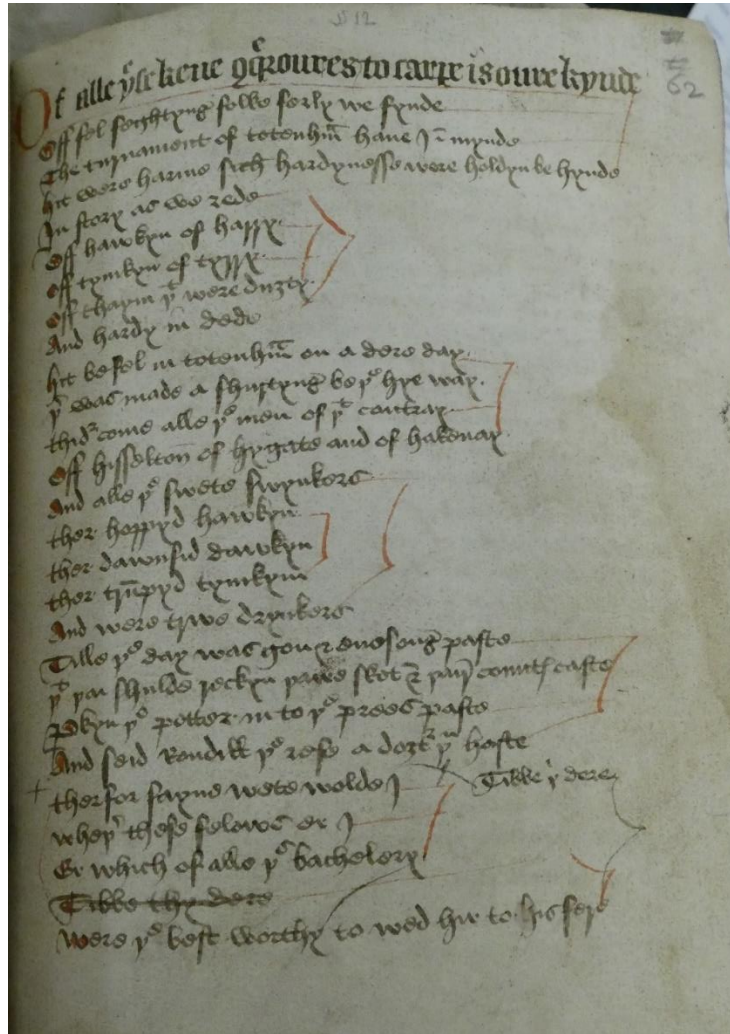 Of alle þese kene conqueroures to carpe is oure kynde
Off fel feghtyng folke ferly we fynde
The turnament of totenham haue I in mynde
hit were harme sich hardynesse were holdyn be hynde
In story as we rede
Off hawkyn of harry
Off tymkyn of tyrry
Off thaym þt were duzty
And hardy in dede
hit befel in totenham on a dere day
þer was made a shurtyng be þe hye way
thidr come alle þe men of þt contray
Off hisselton of hygate and of hakenay
And alle þe swete swynkers
ther hoppyd hawkyn
ther dawnsid dawkyn
ther trumpyd tymkyn
And were trwe drynkers
Tille þe day was gon & euesong paste
þt þai shulde reckyn þaire skot & þair countes caste
Perkyn þe potter in to þe prees paste
And seid Rondill þe refe a dozter þu haste
Tibbe þi dere
therfor fayne wete wolde I
wheþer these felows er I
Er which of alle þe bachelery
Tibbe thy dere
were þe best worthy to wed hir to his fere
62